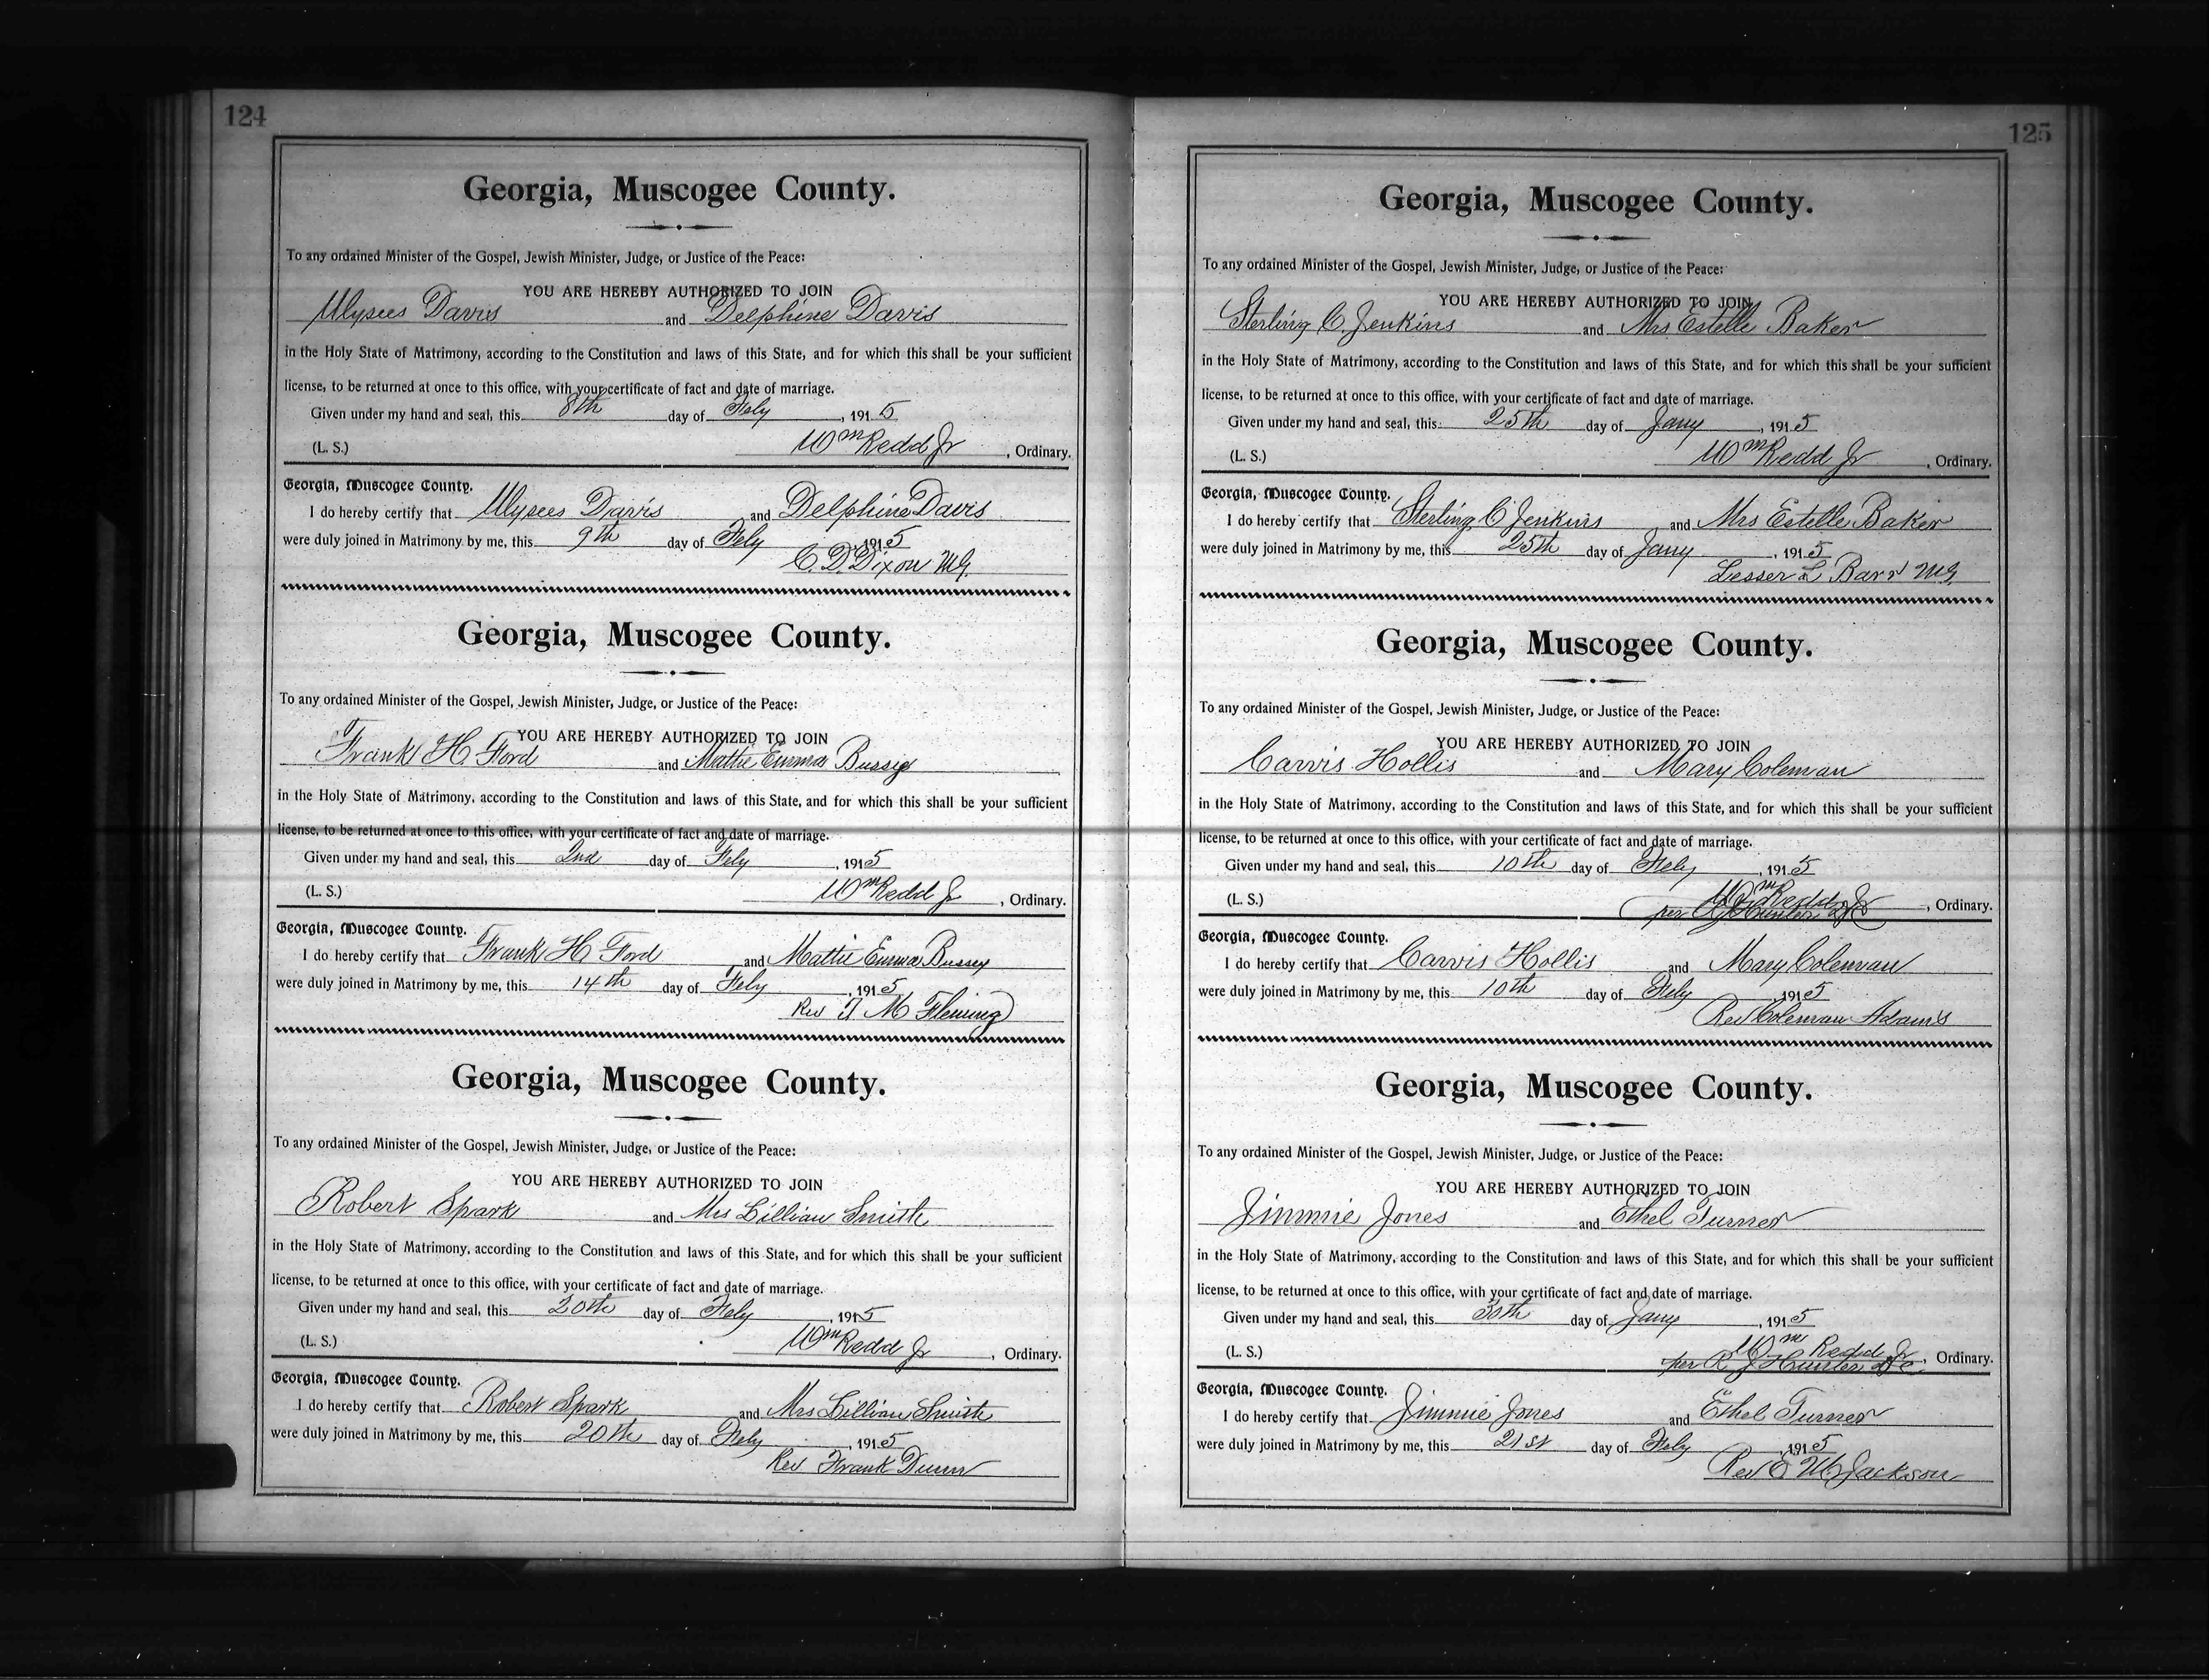 124
Georgia, Muscogee County.
To any ordained Minister of the Gospel, Jewish Minister, Judge, or Justice of the Peace:
YOU ARE HEREBY AUTHORIZED TO JOIN
Ulysees Davis and Delphine Davis
in the Holy State of Matrimony, according to the Constitution and laws of this State, and for which this shall be your sufficient
license, to be returned at once to this office, with your certificate of fact and date of marriage.
Given under my hand and seal, this 8th day of Feby, 1915
(L. S.) Wm Redd Jr, Ordinary.
Georgia, Muscogee County.
I do hereby certify that Ulysees Davis and Delphine Davis
were duly joined in Matrimony by me, this 9th day of Feby 1915
C. D. Dixon M.G.
Georgia, Muscogee County.
To any ordained Minister of the Gospel, Jewish Minister, Judge, or Justice of the Peace:
YOU ARE HEREBY AUTHORIZED TO JOIN
Frank H Ford and Mattie Emma Bussey
in the Holy State of Matrimony, according to the Constitution and laws of this State, and for which this shall be your sufficient
license, to be returned at once to this office, with your certificate of fact and date of marriage.
Given under my hand and seal, this 2nd day of Feby, 1915
(L. S.) Wm Redd Jr, Ordinary.
Georgia, Muscogee County.
I do hereby certify that Frank H Ford and Mattie Emma Bussey
were duly joined in Matrimony by me, this 14th day of Feby, 1915
Rev M Fleming
Georgia, Muscogee County.
To any ordained Minister of the Gospel, Jewish Minister, Judge, or Justice of the Peace:
YOU ARE HEREBY AUTHORIZED TO JOIN
Robert Spark and Mrs Lillian Smith
in the Holy State of Matrimony, according to the Constitution and laws of this State, and for which this shall be your sufficient
license, to be returned at once to this office, with your certificate of fact and date of marriage.
Given under my hand and seal, this 20th day of Feby, 1915
(L. S.) Wm Redd Jr, Ordinary.
Georgia, Muscogee County.
I do hereby certify that Robert Spark and Mrs Lillian Smith
were duly joined in Matrimony by me, this 20th day of Feby, 1915
Rev Frank Dunn
125
Georgia, Muscogee County.
To any ordained Minister of the Gospel, Jewish Minister, Judge, or Justice of the Peace:
YOU ARE HEREBY AUTHORIZED TO JOIN
Sterling C. Jenkins and Mrs Estelle Baker
in the Holy State of Matrimony, according to the Constitution and laws of this State, and for which this shall be your sufficient
license, to be returned at once to this office, with your certificate of fact and date of marriage.
Given under my hand and seal, this 25th day of Jany, 1915
(L. S.) Wm Redd Jr, Ordinary.
Georgia, Muscogee County.
I do hereby certify that Sterling C Jenkins and Mrs Estelle Baker
were duly joined in Matrimony by me, this 25th day of Jany, 1915
Lesser L Barr M.G.
Georgia, Muscogee County.
To any ordained Minister of the Gospel, Jewish Minister, Judge, or Justice of the Peace:
YOU ARE HEREBY AUTHORIZED TO JOIN
Carvis Hollis and Mary Coleman
in the Holy State of Matrimony, according to the Constitution and laws of this State, and for which this shall be your sufficient
license, to be returned at once to this office, with your certificate of fact and date of marriage.
Given under my hand and seal, this 10th day of Feby, 1915
(L. S.) Wm Redd Jr, Ordinary.
per R J Hunter D.C.
Georgia, Muscogee County.
I do hereby certify that Carvis Hollis and Mary Coleman
were duly joined in Matrimony by me, this 10th day of Feby 1915
Rev Coleman Adams
Georgia, Muscogee County.
To any ordained Minister of the Gospel, Jewish Minister, Judge, or Justice of the Peace:
YOU ARE HEREBY AUTHORIZED TO JOIN
Jimmie Jones and Ethel Turner
in the Holy State of Matrimony, according to the Constitution and laws of this State, and for which this shall be your sufficient
license, to be returned at once to this office, with your certificate of fact and date of marriage.
Given under my hand and seal, this 30th day of Jany, 1915
(L. S.) Wm Redd Jr, Ordinary.
per R J Hunter D.C.
Georgia, Muscogee County.
I do hereby certify that Jimmie Jones and Ethel Turner
were duly joined in Matrimony by me, this 21st day of Feby, 1915
Rev E W Jackson